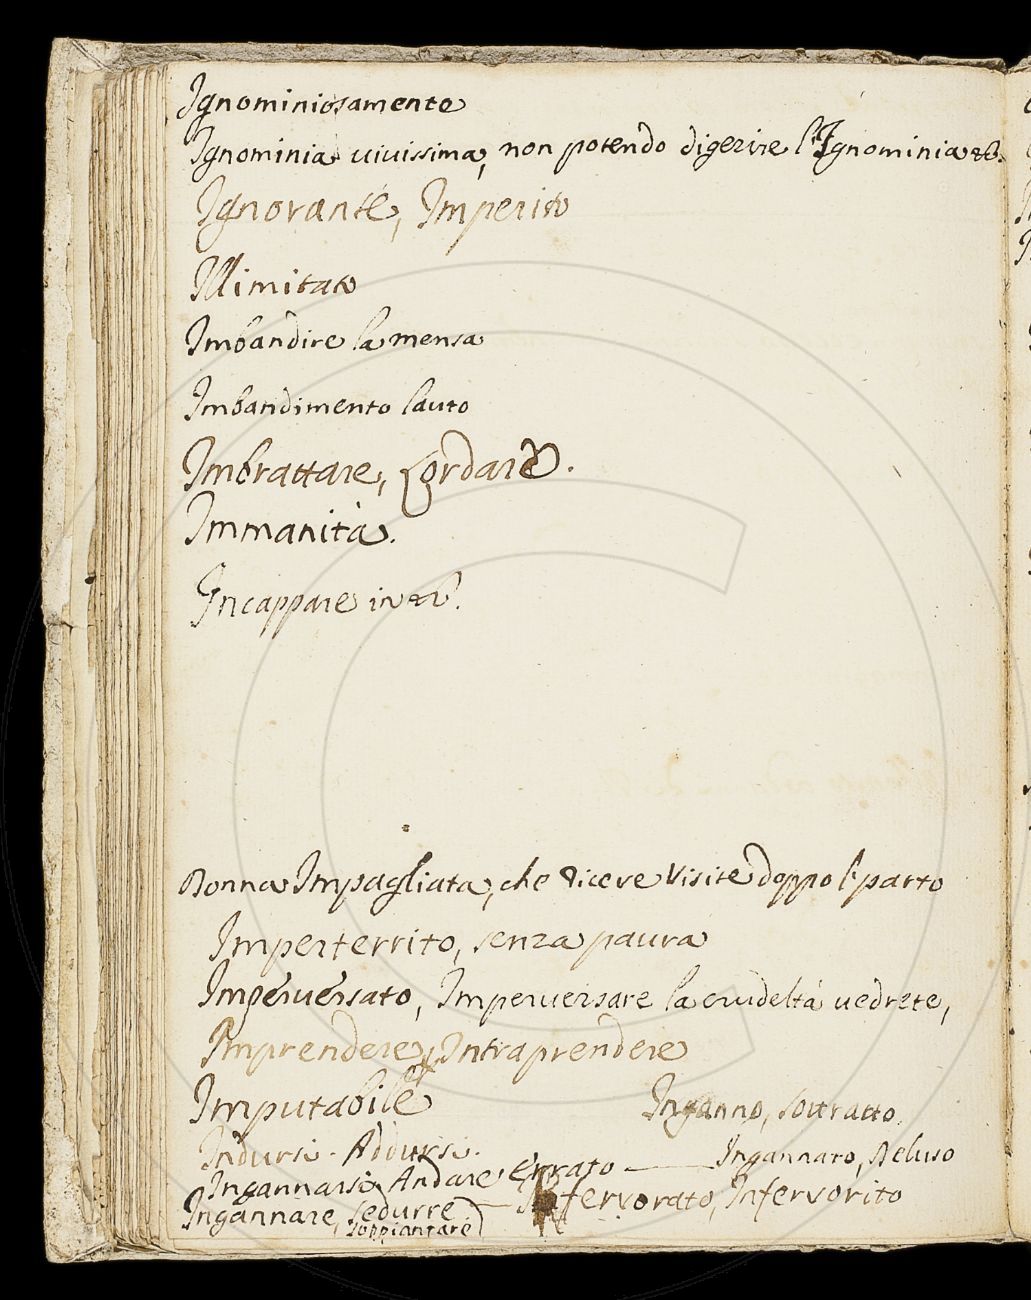 Ignominiosamente
Ignominia vivissima, non potendo digerire l'Ignominia &c.
Ignorante, Imperito
Illimitato
Imbandire la mensa
Imbandimento lauto
Imbrattare, Lordare.
Immanità.
Incappare in &c.
Donna Impagliata, che riceve visite doppo l' parto
Imperterrito, senza paura
Imperversato, Imperversare la crudeltà vedrete,
Imprendere, Intraprendere
Imputabile
Inganno, sottratto.
Indursi. Addursi.
Ingannarsi Andare errato — Ingannato, Deluso
Ingannare, sedurre — Infervorato, Infervorito
soppiantare